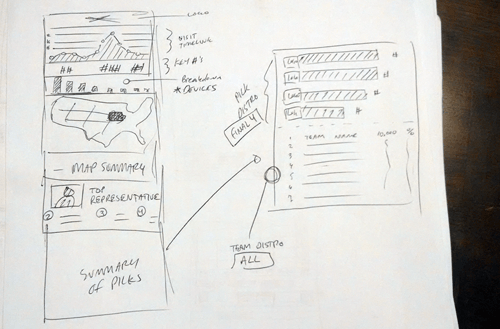 LOGO
VISIT
TIMELINE
KEY #'S
## ### ##
Breakdown
* DEVICES
MAP SUMMARY
TOP
REPRESENTATIVE
2 3 4
SUMMARY
OF PICKS
PICK
DISTRO
FINAL 4
Logo #
Logo #
Logo #
Logo #
1 TEAM NAME 10,000 %
2
3
4
5
TEAM DISTRO
ALL